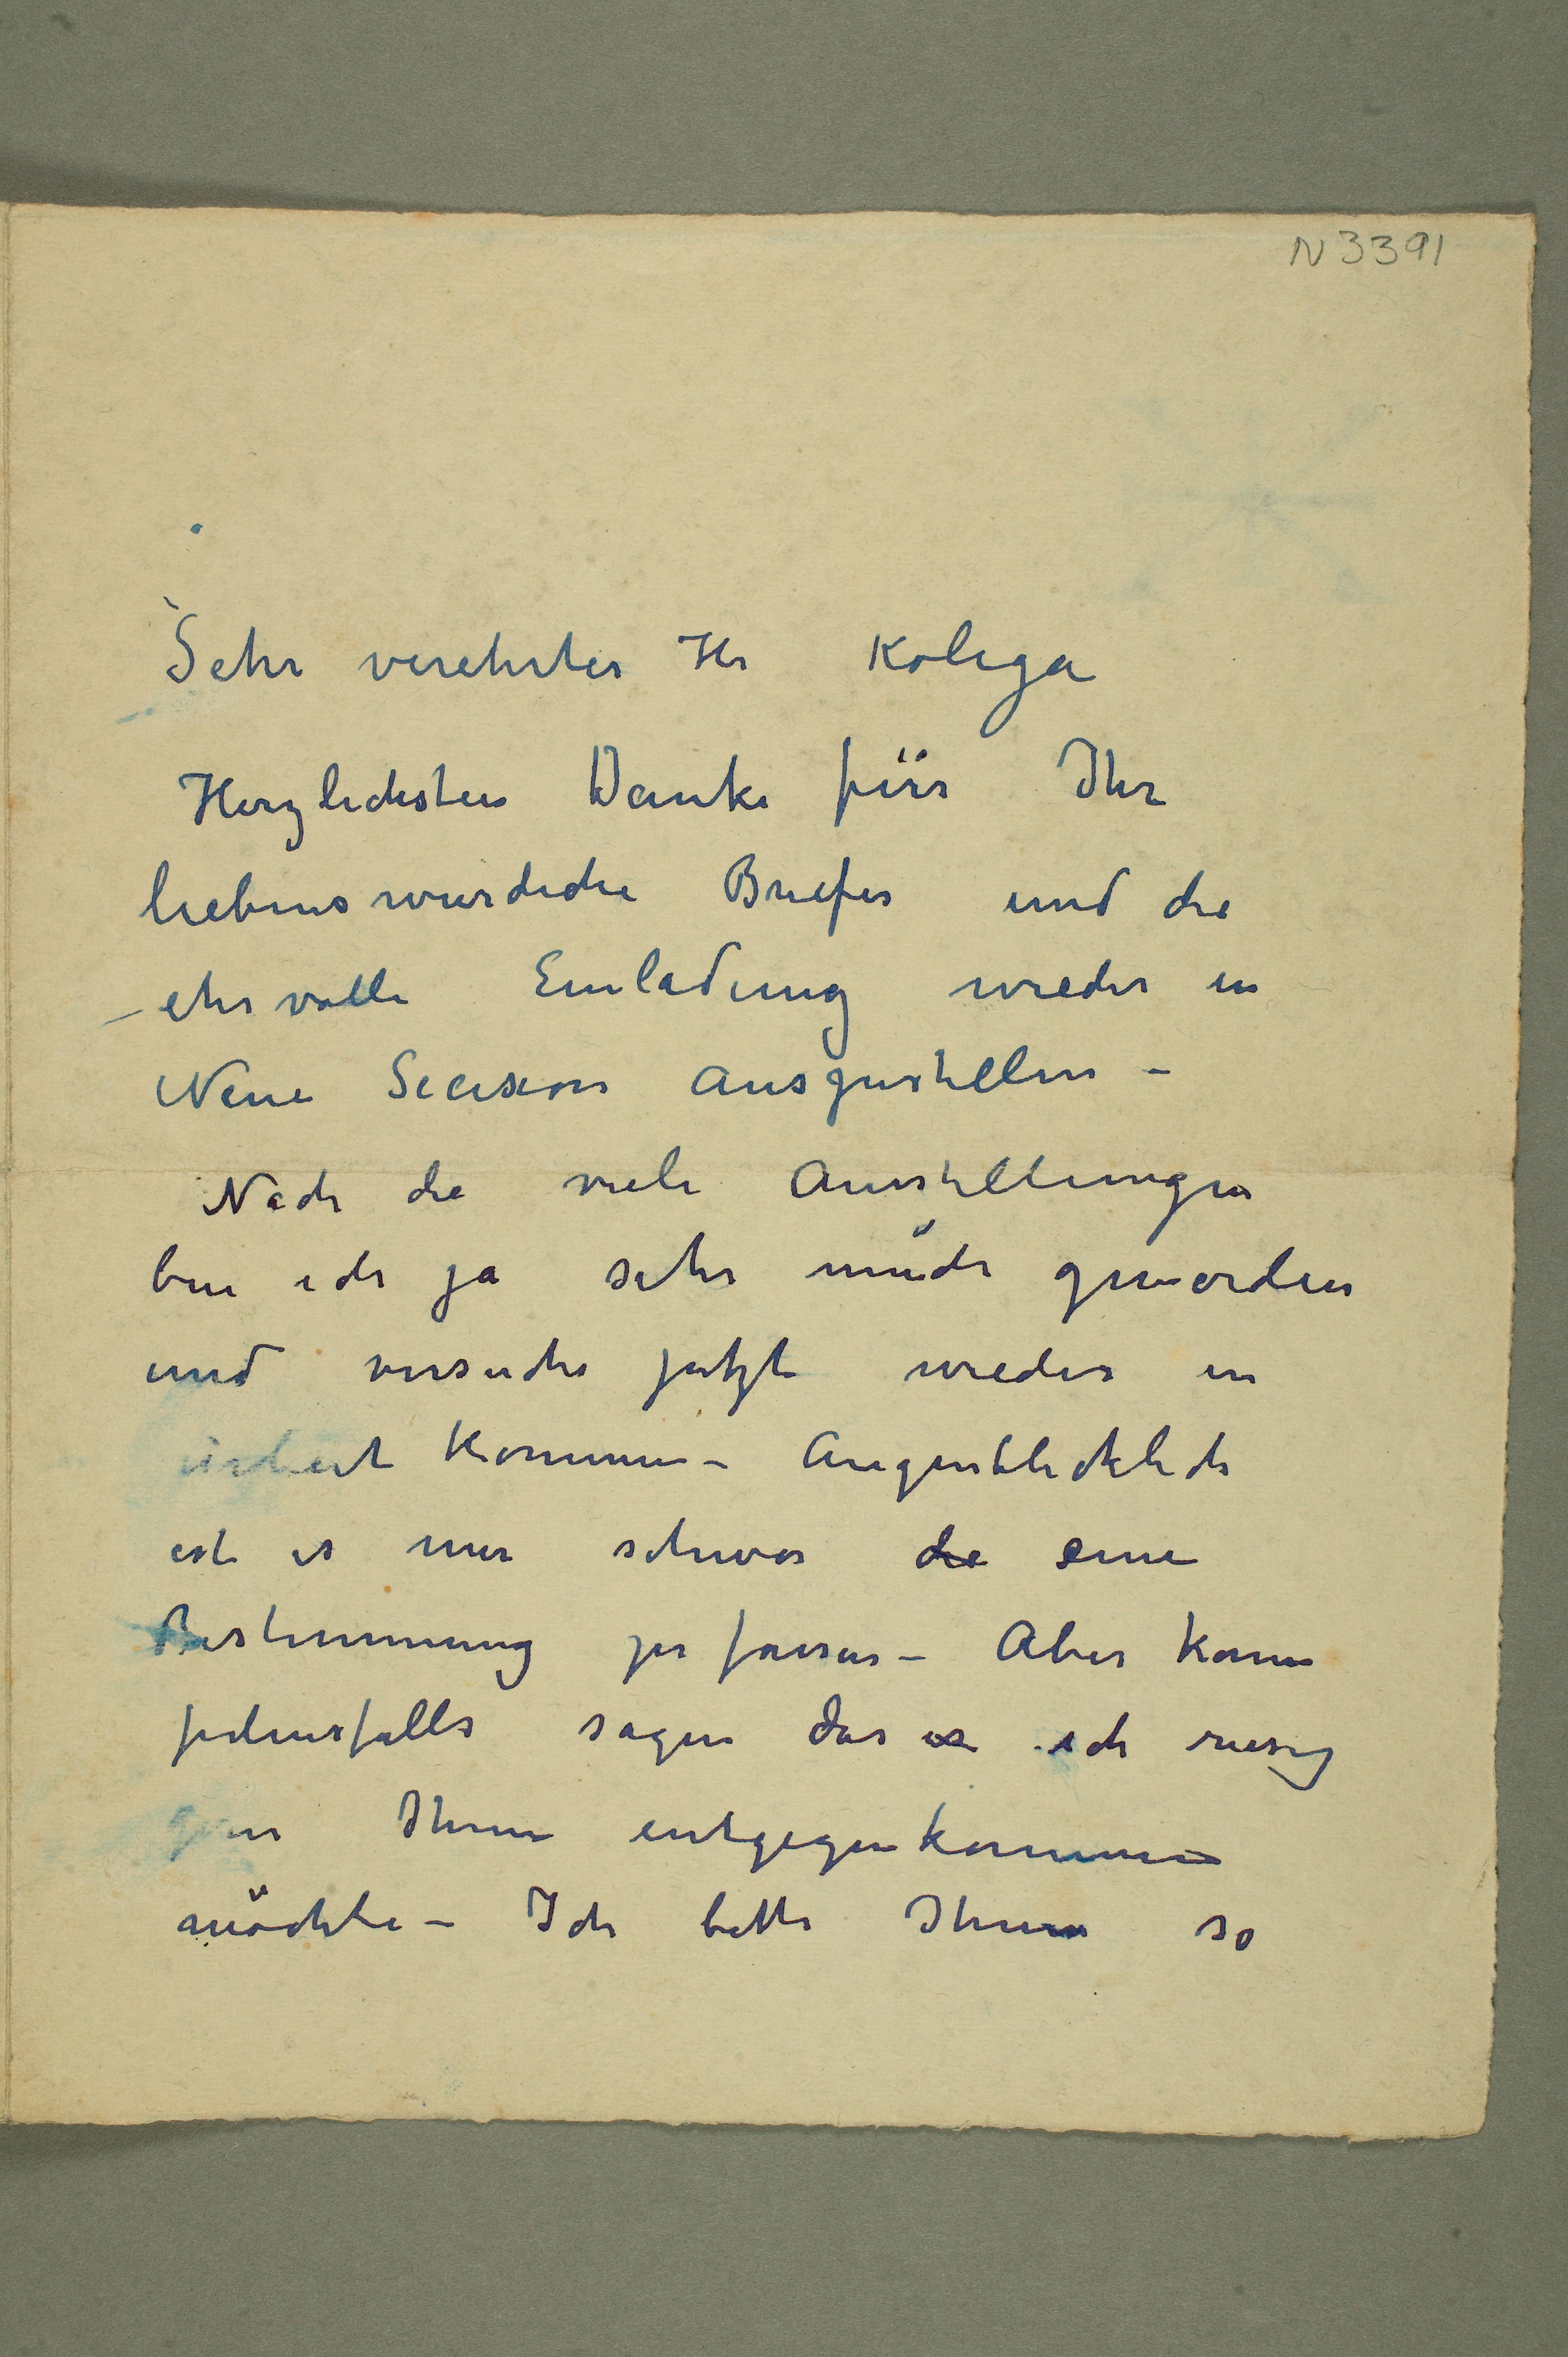 N 3391
Sehr verehrter Hr Kolega
Herzlichsten Danke für Ihr
liebenswurdiche Briefer und die
ehrvolle Einladung wieder in
Neue Secession auszustellen –
Nach die viele Ausstellungen
bin ich ja sehr müde geworden
und versuche jetzt wieder in
arbeit kommen – Augenblicklich
ist es mir schwer die eine
Bestimmung zu fassen – Aber kann
jedensfalls sagen das es ich riesig
gern Ihnen entgegenkommen
möchte – Ich bitte Ihnen so